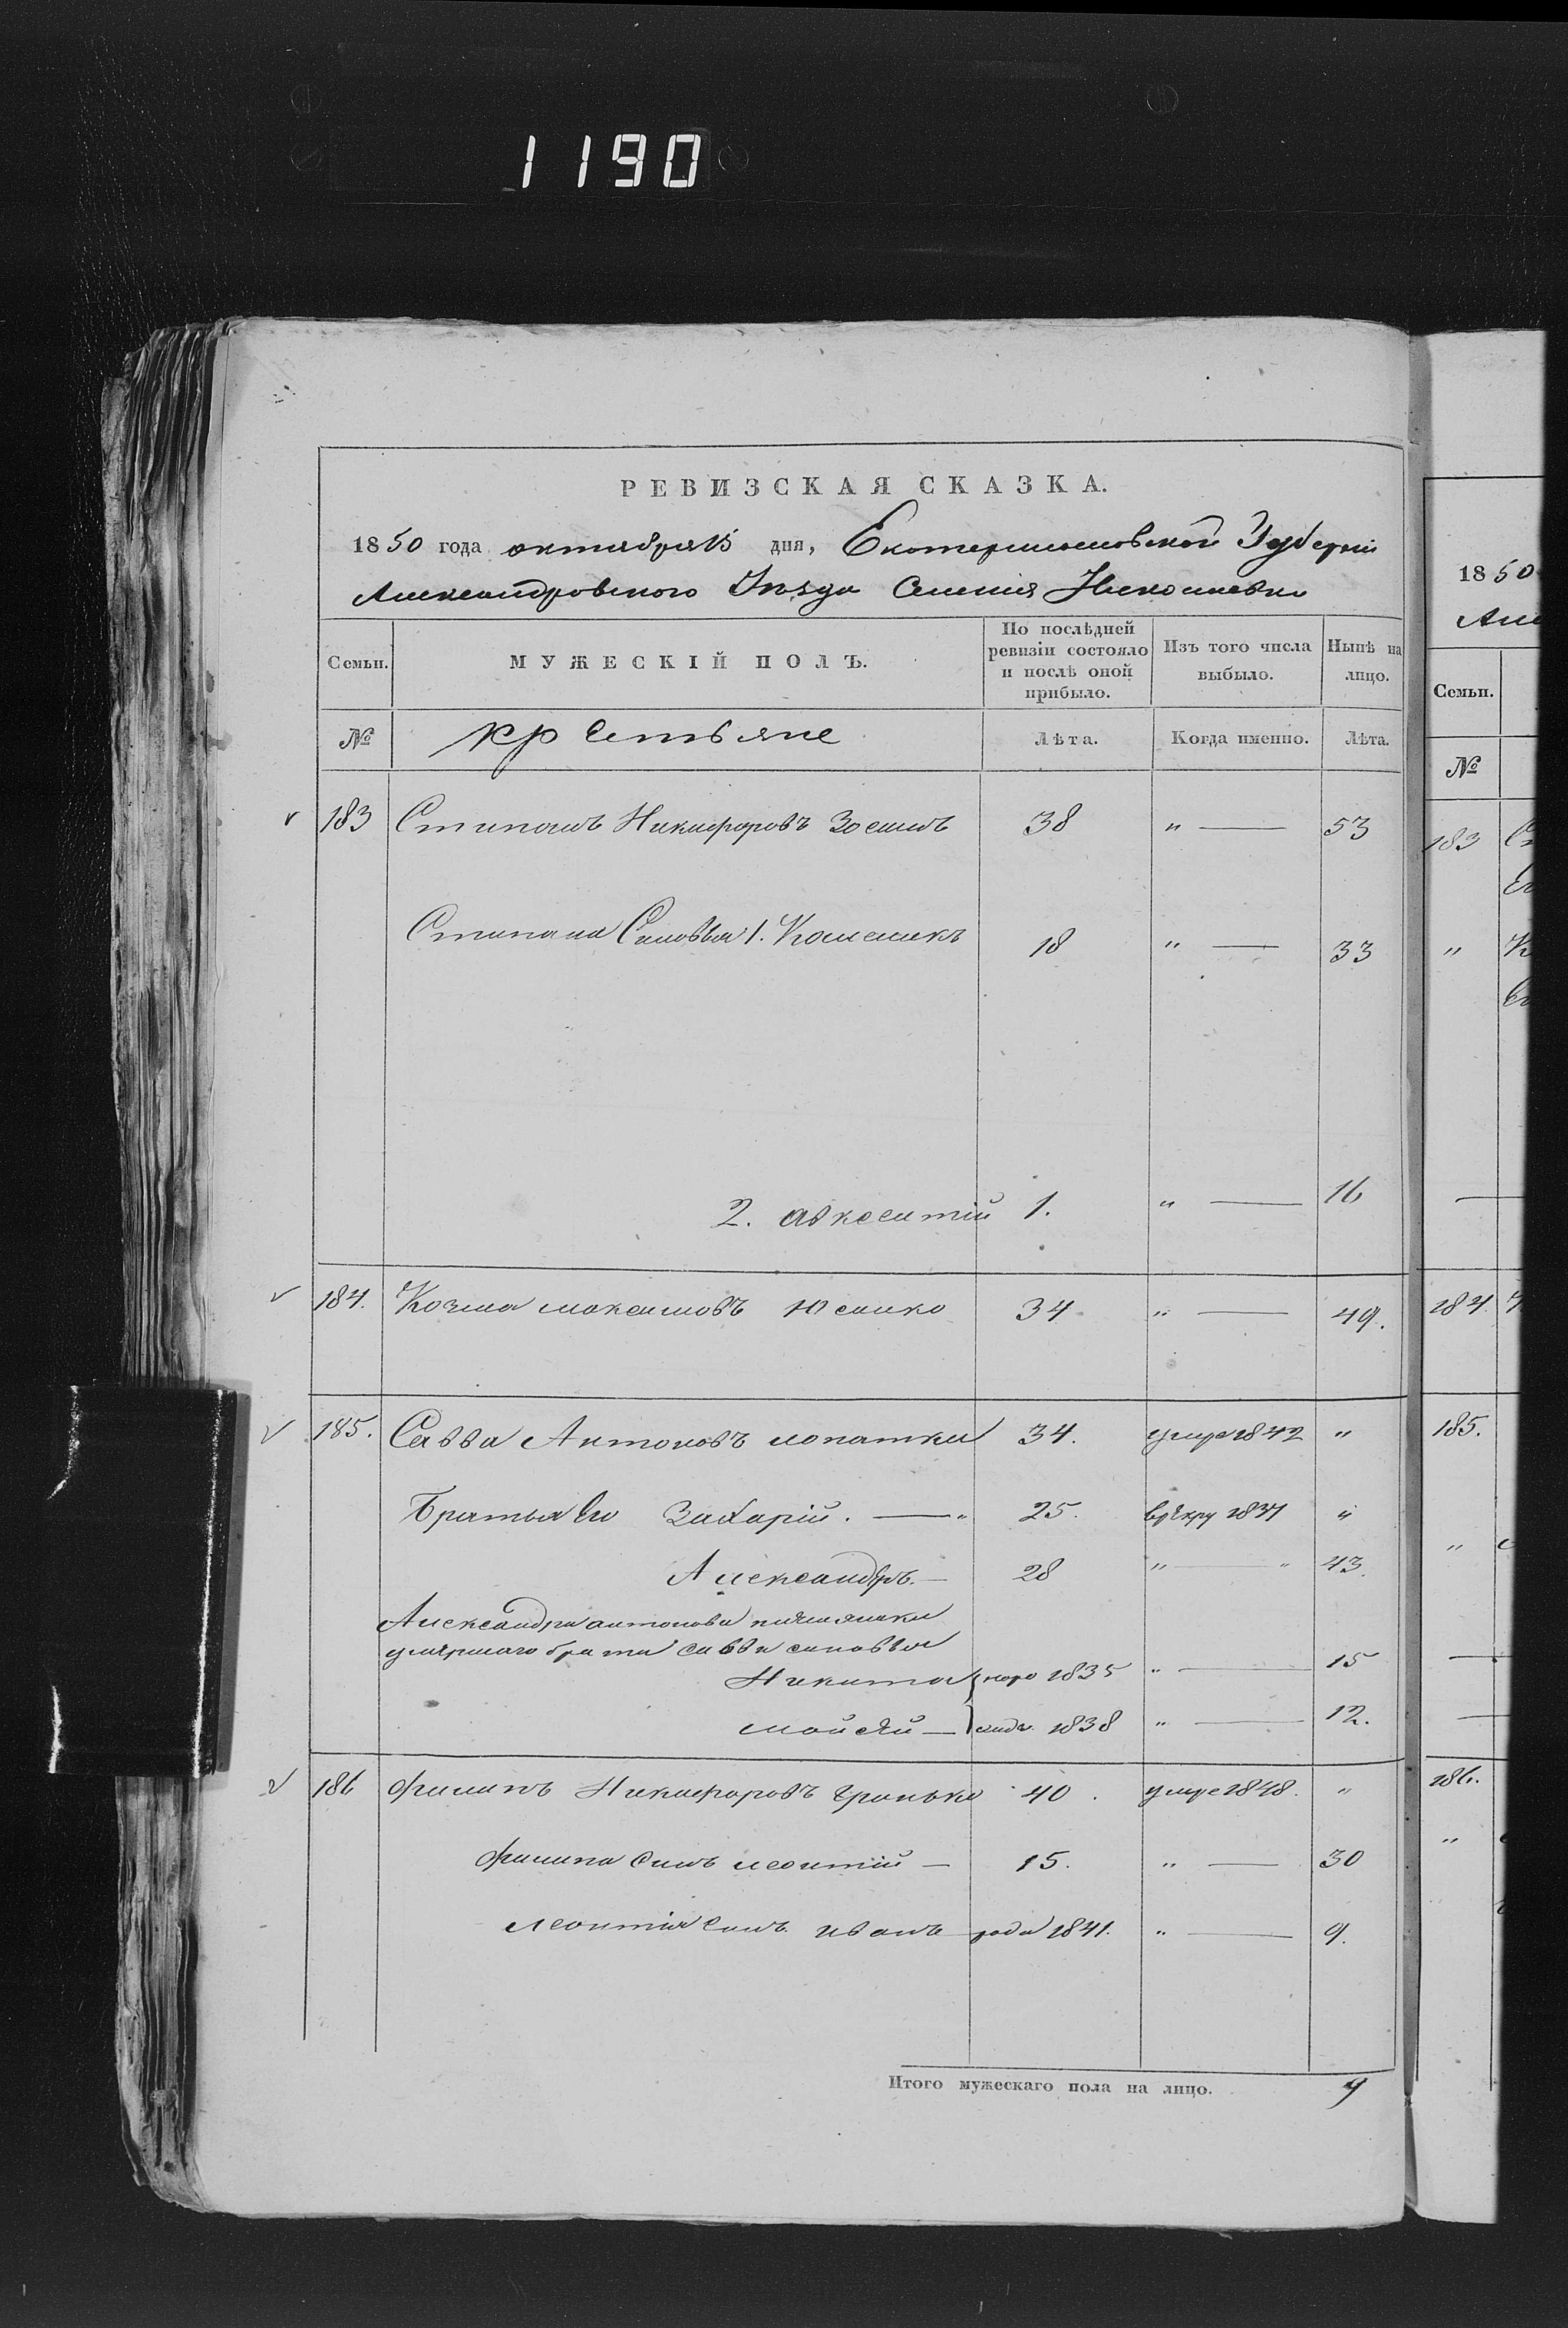 1190
РЕВИЗСКАЯ СКАЗКА.
1850 года октября 15 дня, Екатеринославской Губерніи
Александровского Уѣзда Селенія
Семьи. МУЖЕСКІЙ ПОЛЪ. По послѣдней ревизіи состояло и послѣ оной прибыло. Изъ того числа выбыло. Нынѣ на лицо.
№ крестьяне Лѣта. Когда именно. Лѣта.
183 Стипанъ Никифоровъ 38 " — 53
Стипана Синовья 1. 18 " — 33
2. авксентій 1. " — 16
184. Козма максимовъ 34 " — 49.
185. Савва Антоновъ лопатка 34. умре 1842 "
Братья Его Захарій. — " 25. врекру 1837 "
Александръ. — 28 " — " 43.
Александра антонова племяники
умершаго брата савви синовья
Никита 1835 " — 15
мойсей — 1838 " — 12.
186 филипъ Никифоровъ гранька 40. умре 1848. "
филипа Синъ леонтій — 15. " — 30
леонтія Синъ иванъ 1841. " — 9.
Итого мужескаго пола на лицо. 9
1850
Але
Семьи.
№
183
"
184.
185.
"
186.
"